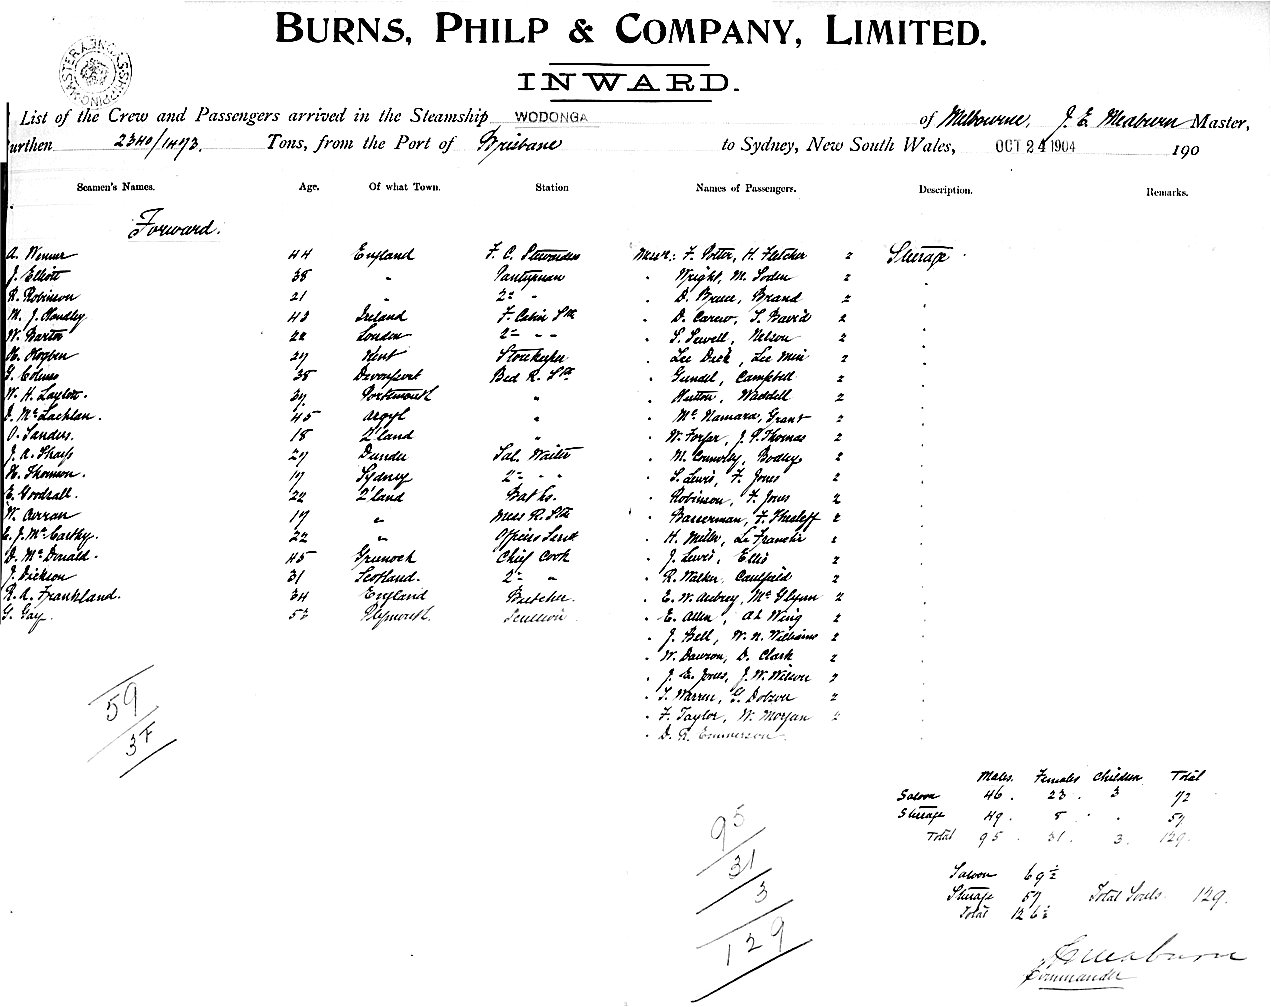 BURNS, PHILP & COMPANY, LIMITED.
INWARD.
List of the Crew and Passengers arrived in the Steamship WODONGA of Melbourne, J. E. Meaburn Master,
urthen 2340/1473. Tons, from the Port of Brisbane to Sydney, New South Wales, OCT 24 1904 190
Seamen's Names. Age. Of what Town. Station Names of Passengers. Description. Remarks.
Forward.
A. 44 England F. C. Messrs: F. Potter, H. Fletcher 2 Steerage
J. Elliott 38 " Pantryman " Wright, M. Soden 2 "
R. Robinson 21 " 2nd " " D. Bruce, Brand 2 "
M. J. Handley 43 Ireland F. Cabin Std " D. Carew, S. David 2 "
W. Barton 22 London 2nd " " " S. Sewell, Nelson 2 "
H. Hogben 27 Kent Storekeeper " Lee Dick, Lee Min 2 "
G. 38 Devonport Bed R. Std " Gundel, Campbell 2 "
W. H. Laylott. 37 Portsmouth " " Hutton, Waddell 2 "
D. McLachlan. 45 Argyl " " McNamara, Grant 2 "
O. Sanders. 18 Q'land " " W. Forfar, J. P. Thomas 2 "
J. A. Sharp 27 Dundee Sal. Waiter " M. Connolly, Bodley 2 "
H. Thomson. 19 Sydney 2nd " " " S. Lewis, F. Jones 2 "
E. Goodsall. 22 Q'land Bat Ks. " Robinson, F. Jones 2 "
W. Curran 19 " Mess R. Std " Basserman, F. 2 "
E. J. McCarthy. 22 " Officers Servt " H. Miller, La Franchi 2 "
D. McDonald. 45 Greenock Chief Cook " J. Lewis, Ellis 2 "
J. Dickson 31 Scotland. 2nd " " R. Walker, Caulfield 2 "
R. A. Frankland. 34 England Butcher. " E. W. Aubrey, McGlynn 2 "
G. Gay. 53 Plymouth. Scullion " E. Allen, Ah Wing 2 "
" J. Bell, W. N. Williams 2 "
" W. Dawson, D. Clark 2 "
" J. E. Jones, J. W. Wilson 2 "
" T. Warren, G. Dobson 2 "
" F. Taylor, W. Morgan 2 "
" D. R. Emmerson "
59
37
Males. Females Children Total
Saloon 46. 23. 3 72
Steerage 49. 8 . . 57
Total 95. 31. 3. 129.
95
31
3
129
Saloon 69½
Steerage 57 Total Souls. 129.
Total 126½
J E Meaburn
Commander